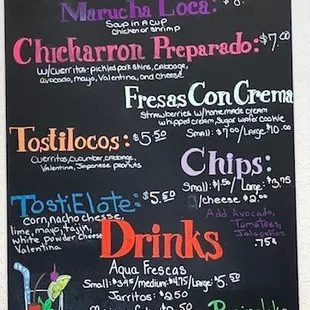 Marucha Loca:
Soup in a cup
chicken or shrimp
Chicharron Preparado: $7.00
w/cuerritos-pickled pork skins, cabbage,
avocado, mayo, Valentina, and cheese
Fresas Con Crema
Strawberries w/homemade cream
whipped cream, sugar wafer cookie
Small: $7.00/Large $10.00
Tostilocos: $5.50
Cuerritos, cucumber, cabbage,
Valentina, Japanese peanuts
Chips:
Small: $1.50/Large: $3.75
w/cheese
TostiElote: $5.50
corn, nacho cheese,
lime, mayo, tajin,
white powder cheese
Valentina
Add Avocado,
Tomatoes,
Jalapeños
.75¢
Drinks
Aqua Frescas
Small: $3.95/medium: $4.75/Large: $5.50
Jarritos: